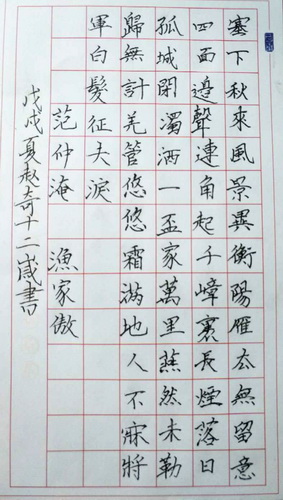 塞下秋來風景異衡陽雁去無留意
四面邊聲連角起千嶂裏長煙落日
孤城閉濁酒一盃家萬里燕然未勒
歸無計羌管悠悠霜滿地人不寐將
軍白髮征夫淚
范仲淹 漁家傲
戊戌夏赵奇十二歲書